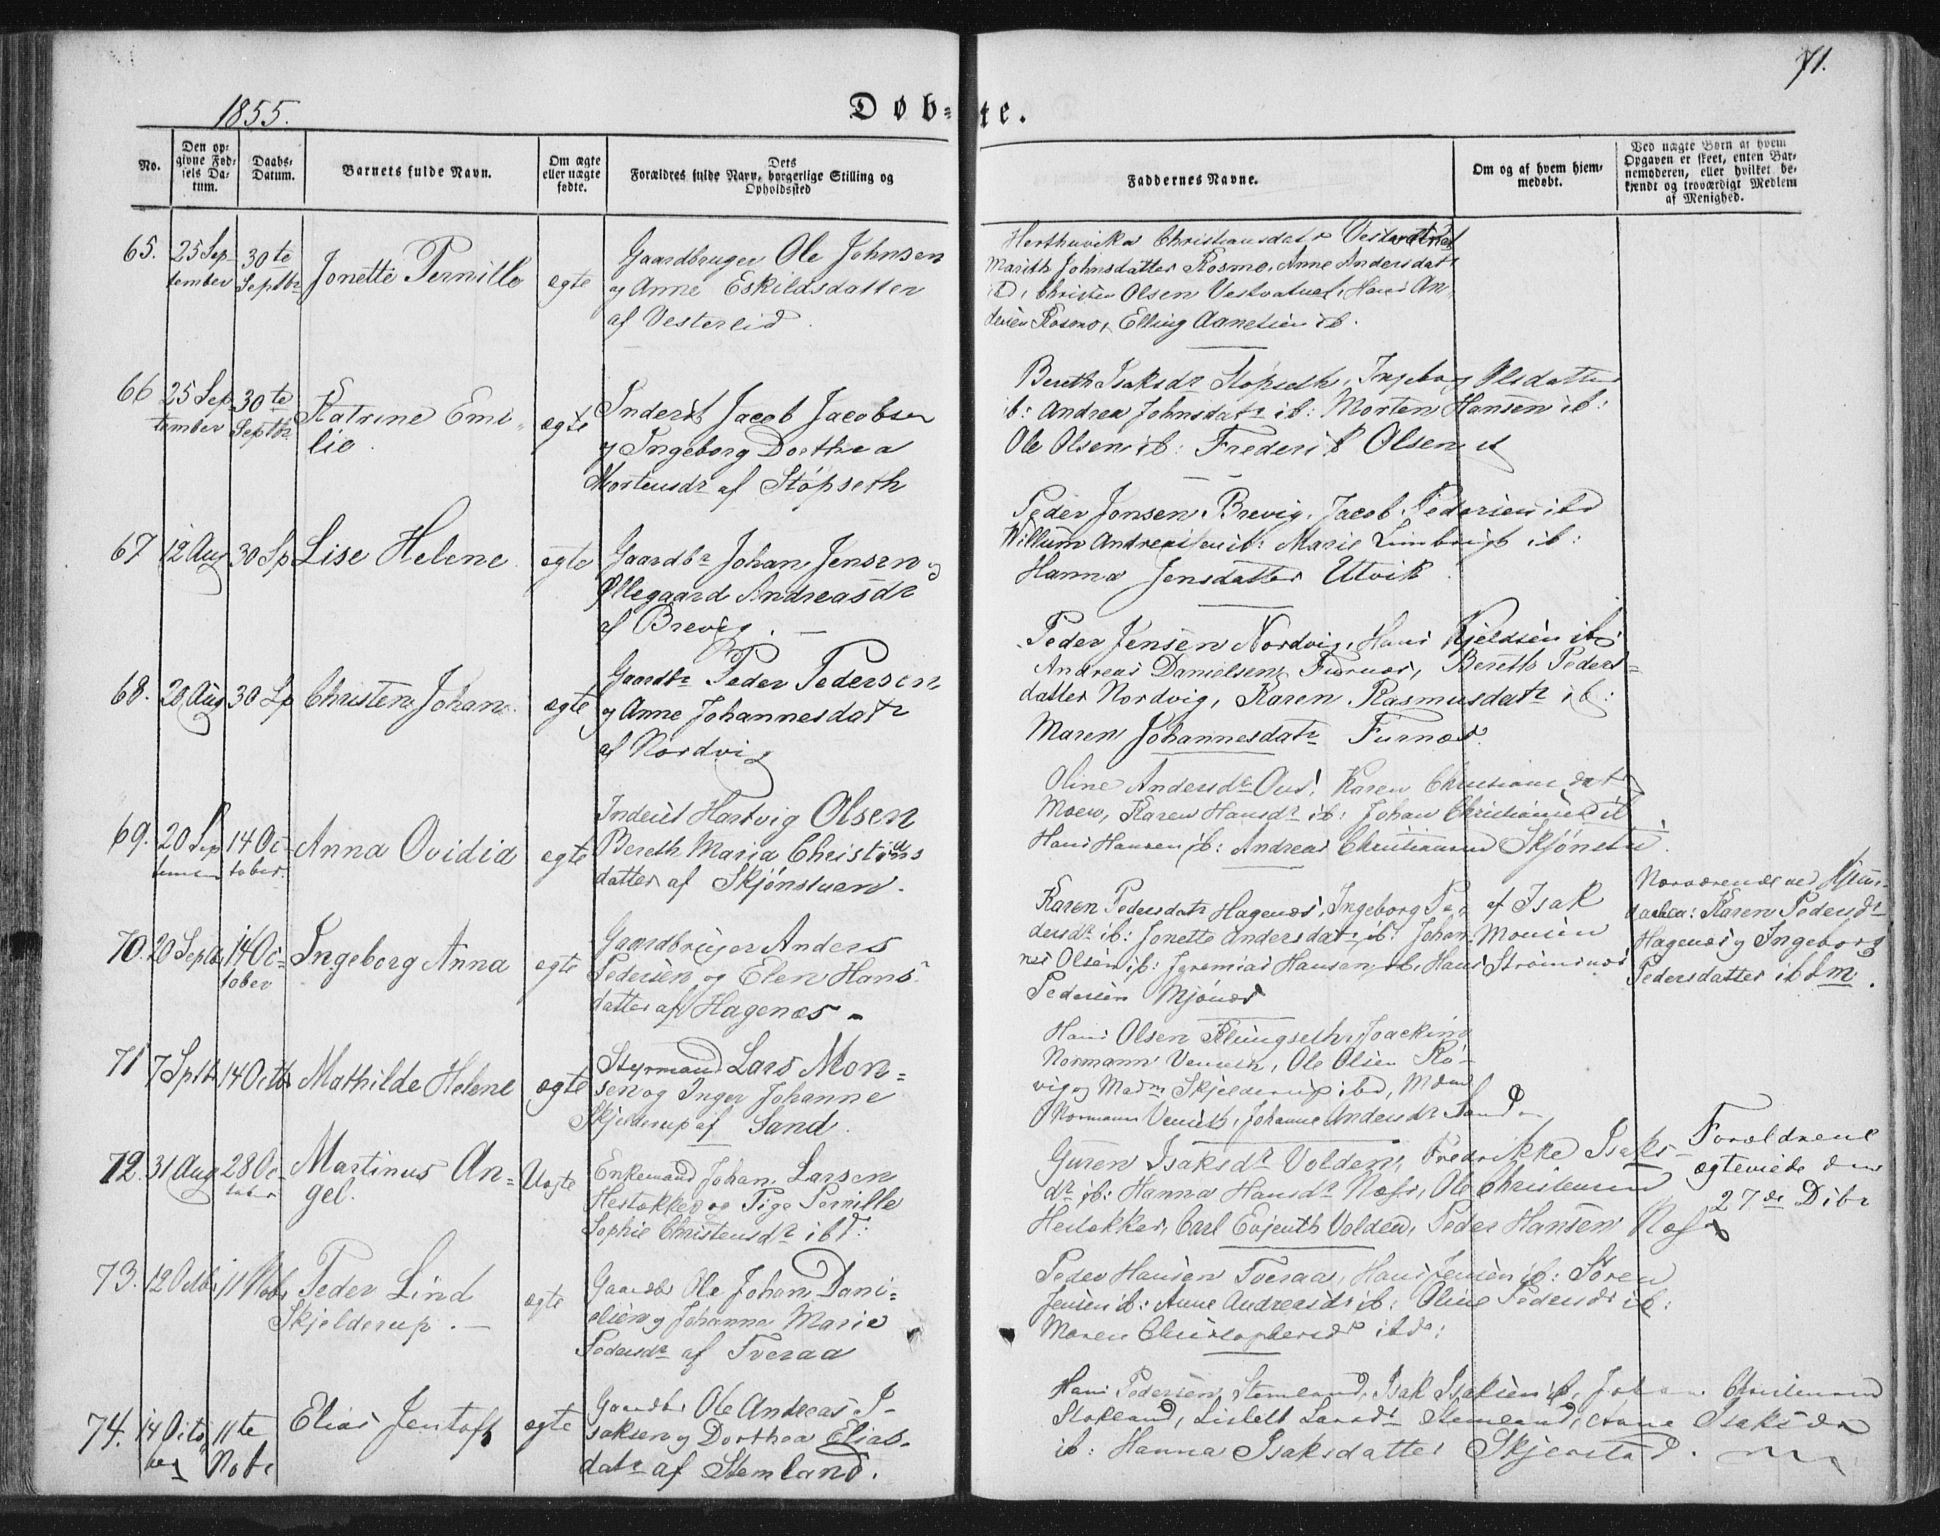 71.
1855.
Døb-te.
No.
Den opgivne Fødsels Datum.
Daabs-Datum.
Barnets fulde Navn.
Om ægte eller uægte fødte.
Dets Forældres fulde Navn, borgerlige Stilling og Opholdssted
Faddernes Navne.
Om og af hvem hjemmedøbt.
Ved uægte Børn af hvem Opgaven er skeet, enten Barnemoderen, eller hvilket bekjendt og troværdigt Medlem af Menighed.
65. 25 September 30te Septbr Jonette Pernille ægte
Gaardbruger Ole Johnsen
og Anne Eskildsdatter
af Vesterlid.
Christiansdatr
Marith Johnsdatter Rosmo, Anne Andersdatr
Christen Olsen Hans An-
dersen Rosmo, Elling ib.
66 25 September 30te Septbr Katrine Emi-
lie. ægte
Inderst Jacob Jacobsen
og Ingeborg Dorthea
Mortensdr af Støpseth
Bereth Isaksdr Støpseth, Ingeborg Olsdatter
ib: Andrea Johnsdatr ib: Morten Hansen ib:
Ole Olsen ib: Frederik Olsen
67 12 Aug 30 Sp Lise Helene ægte
Gaardbr Johan Jensen og
Øllegaard Andreasdr
af Brevig. —
Peder Jonsen Brevig, Jacob Pedersen ibd
Willum Andreasen ib: Marie ib:
Hanna Jensdatter Utvik.
68. 20 Aug 30 Sp Christen Johan. ægte
Gaardbr Peder Pedersen
og Anne Johannesdatr
af Nordvig
Peder Jensen Nordvig, Hans Kjeldsen ib:
Andreas Danielsen Furnæs, Bereth Peders-
datter Nordvig, Karen Rasmusdatr ib:
Maren Johannesdatr Furnæs.
69. 20 Sep
tember 14 Oc-
tober. Anna Ovidia ægte
Inderst Hartvig Olsen
Bereth Maria Christians
datter af Skjønstuen.
Oline Andersdr Karen Christiansdatr
Moen, Karen Hansdr ib: Johan Christiansen ib
Hans Hansen ib: Andreas Christiansen
70. 20 Septbr 14 Oc-
tober Ingeborg Anna ægte
Gaardbruger Anders
Pedersen og Elen Hans-
datter af Hagenæs —
Karen Pedersdatr Hagenæs, Ingeborg Pe-
dersdr ib: Jonette Andersdatr ib: Johan-
nes Olsen ib: Jeremias Hansen ib, Hans
Pedersen Mjønæs
af Isak
Monsen
Strømsnæs
Nærværende ved Hjem-
daaben: Karen Pedersdr
Hagenæs og Ingeborg
Pedersdatter ibdm.
71 7 Septbr 14 Octbr Mathilde Helene ægte
Styrmand Lars Mon-
sen og Inger Johanne
Skjelderup af Sand.
Hans Olsen Klungseth, Joackim
Normann Venseth, Ole Olsen Rø-
vig og Madm Skjelderup ibd,
Normann Venseth, Johanne Andersdr Sand
72. 31 Aug 28 Oc-
tober Martinus An-
gel. Uægte
Enkemand Johan Larsen
Hestøkker og Pige Pernille
Sophie Christensdr ibd:
Guren Isaksdr Volden, Fredrikke Isaks-
dr ib: Hanna Hansdr Næss, Ole Christensen
Hestøkker, Carl Evjenth Volden, Peder Hansen Næss
Forældrene
ægteviede den
27de Dcbr
73. 12 Octbr 11 Nobr Peder Lind
Skjelderup. — ægte
Gaardbr Ole Johan Dani-
elsen og Johanna Marie
Pedersdr af Tveraa
Peder Hansen Tveraa, Hans Jensen ib: Søren
Jensen ib: Anne Andreasdr ib: Oline Pedersdr ib:
Maren Christophersdr ibd:
74. 14 Octo-
ber 11te
Nobr Elias Jentoft ægte
Gaardbr Ole Andreas I-
saksen og Dorthea Elias-
datr af Stemland.
Hans Pedersen Stemland, Isak Isaksen ib, Johan Christensen
Stokland, Lisbeth Larsdr Stemland, Anne Isaksdr
ib: Hanna Isaksdatter Skjerstad.